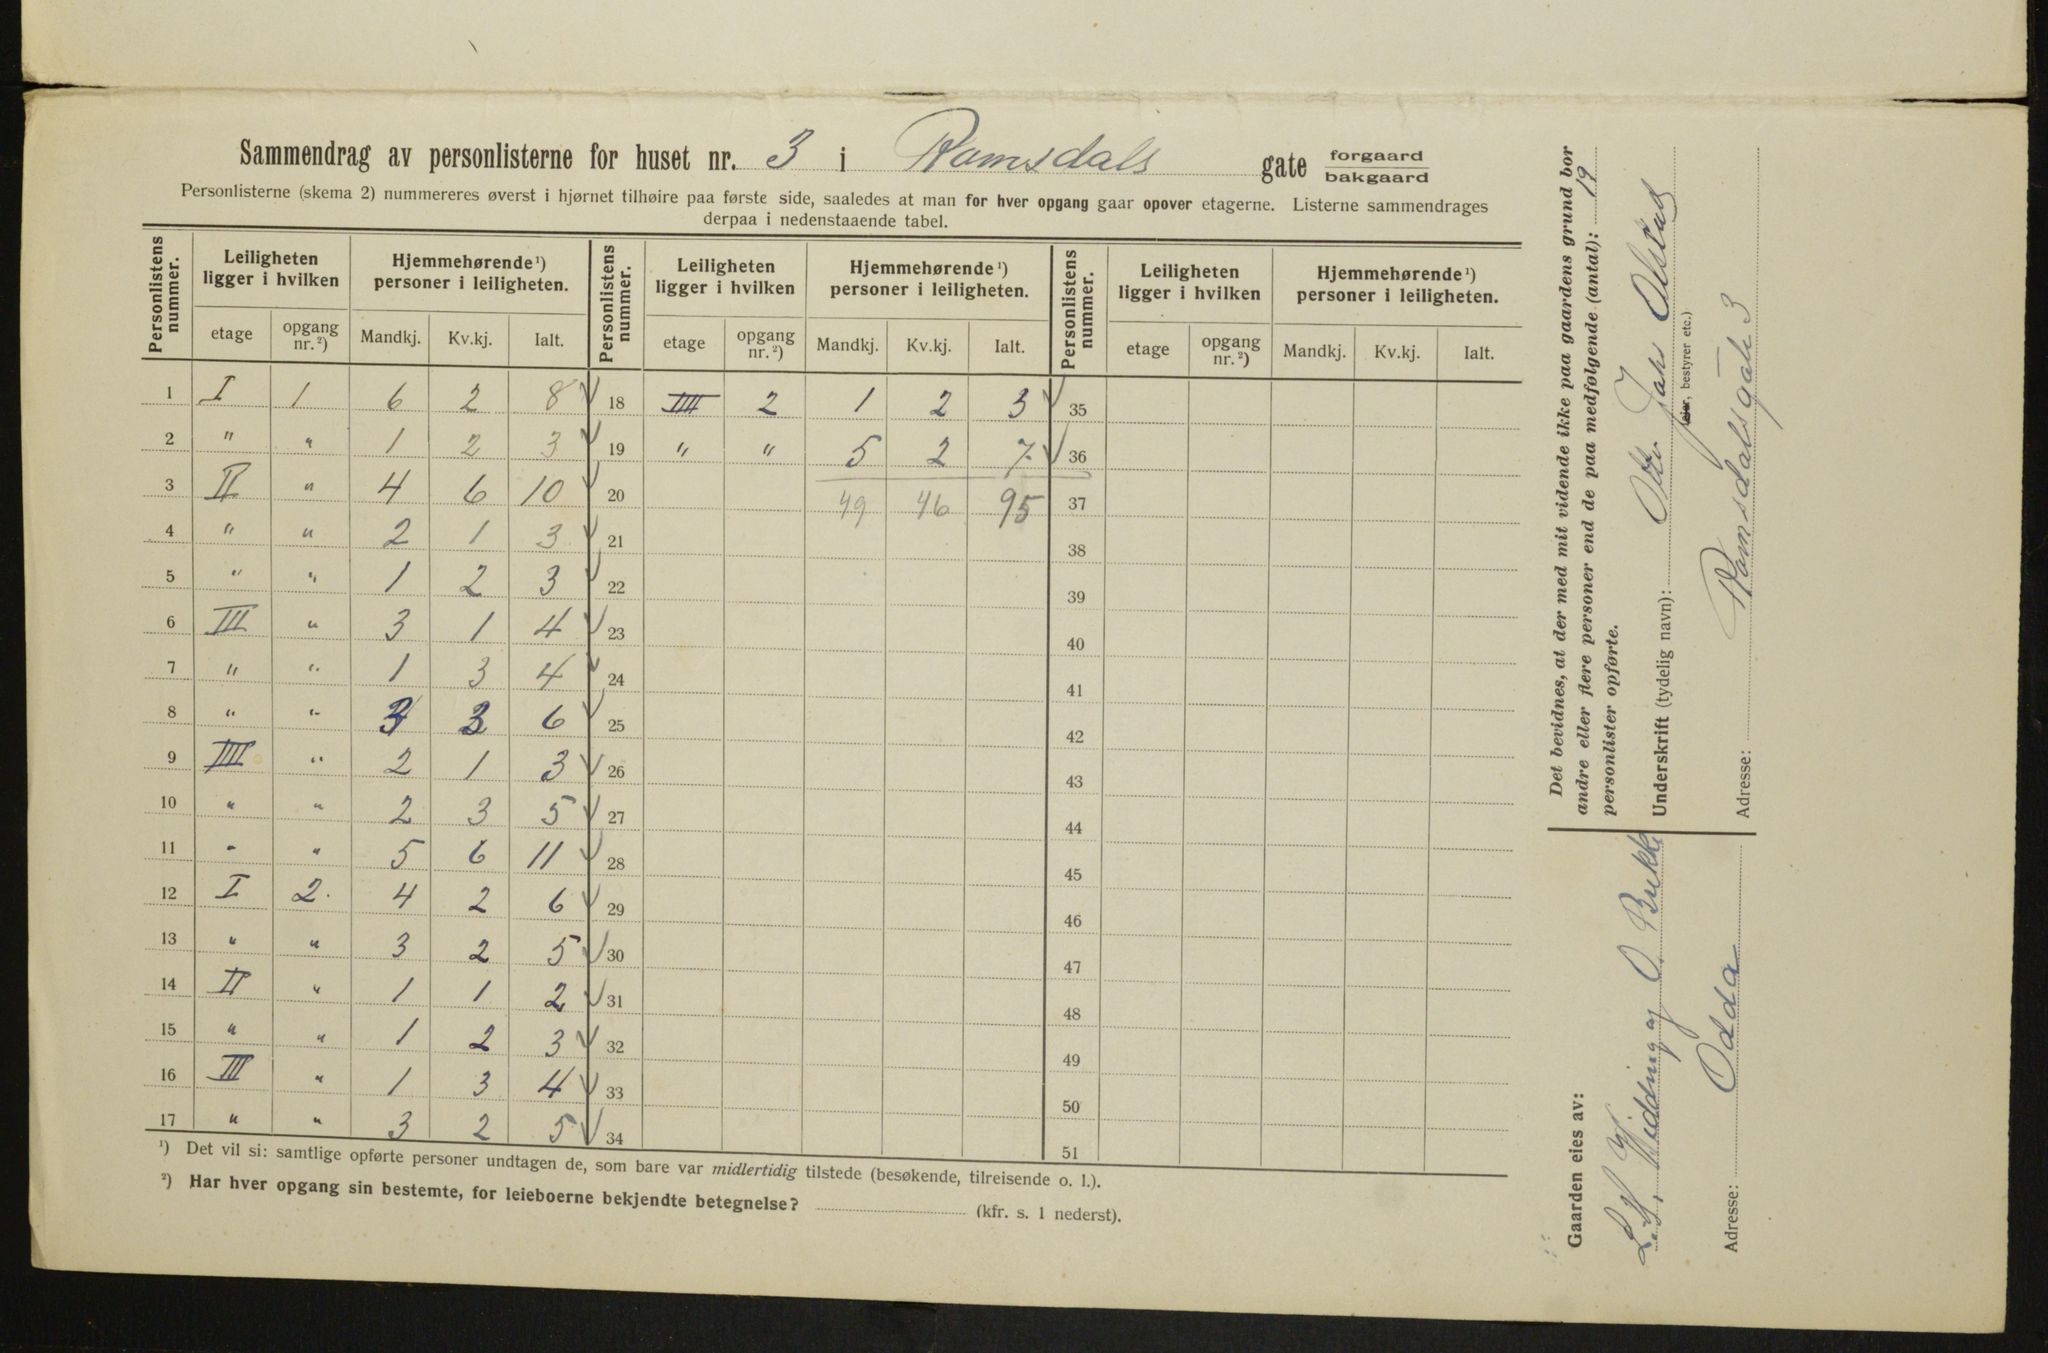 Sammendrag av personlisterne for huset nr. 3 i Romsdals gate forgaard bakgaard
Personlisterne (skema 2) nummereres øverst i hjørnet tilhøire paa første side, saaledes at man for hver opgang gaar opover etagerne. Listerne sammendrages
derpaa i nedenstaaende tabel.
Personlistens nummer. Leiligheten ligger i hvilken Hjemmehørende ¹) personer i leiligheten. Personlistens nummer. Leiligheten ligger i hvilken Hjemmehørende ¹) personer i leiligheten. Personlistens nummer. Leiligheten ligger i hvilken Hjemmehørende ¹) personer i leiligheten.
etage opgang nr. ²) Mandkj. Kv.kj. Ialt. etage opgang nr. ²) Mandkj. Kv.kj. Ialt. etage opgang nr. ²) Mandkj. Kv.kj. Ialt.
1 I 1 6 2 8 18 IIII 2 1 2 3 35
2 " " 1 2 3 19 " " 5 2 7 36
3 II " 4 6 10 20 49 46 95 37
4 " " 2 1 3 21 38
5 " " 1 2 3 22 39
6 III " 3 1 4 23 40
7 " " 1 3 4 24 41
8 " " 3 3 6 25 42
9 IIII " 2 1 3 26 43
10 " " 2 3 5 27 44
11 - " 5 6 11 28 45
12 I 2. 4 2 6 29 46
13 " " 3 2 5 30 47
14 II " 1 1 2 31 48
15 " " 1 2 3 32 49
16 III " 1 3 4 33 50
17 " " 3 2 5 34 51
¹) Det vil si: samtlige opførte personer undtagen de, som bare var midlertidig tilstede (besøkende, tilreisende o. l.).
²) Har hver opgang sin bestemte, for leieboerne bekjendte betegnelse? (kfr. s. 1 nederst).
Det bevidnes, at der med mit vidende ikke paa gaardens grund bor
andre eller flere personer end de paa medfølgende (antal): 19
personlister opførte.
Underskrift (tydelig navn): Otto Johs Olstad
eier, bestyrer etc.)
Adresse: Romsdalsgate 3
Gaarden eies av:
L. H. Widding og O. Bukke
Adresse: Odda